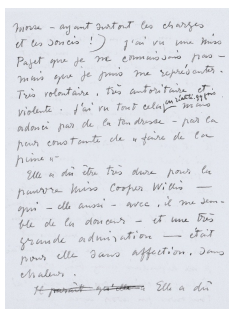 mouse - ayant surtout les charges
et les soucis !) J'ai vu une Miss
Paget que je ne connaissais pas -
mais que je puis me représenter.
Très volontaire, très autoritaire et
violente. J'ai vu tout cela mais
adouci par de la tendresse - par la
peur constante de « faire de la
peine »
Elle a dû être très dure pour la
pauvre Miss Cooper Willis -
qui - elle aussi - avec, il me sem-
ble de la douceur - et une très
grande admiration - était
pour elle sans affection, sans
chaleur.
Il paraît qu'elle Elle a dû